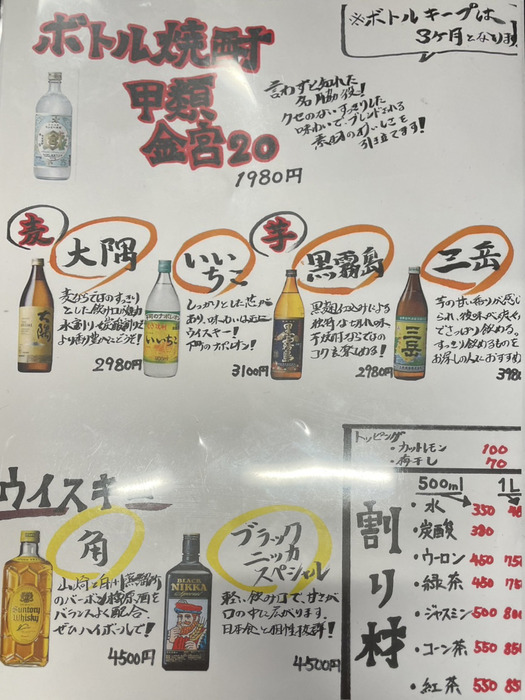 ※ボトルキープは
3ヶ月となります
ボトル焼酎
甲類
金宮20
1980円
言わずと知れた
名脇役!
クセのないすっきりした
味わいで、ブレンドされる
素材のおいしさを
引立てます!
麦
大隅
麦ならではのすっきり
とした飲み口が魅力
水割り、炭酸割りで
より香り豊かにどうぞ!
2980円
いいちこ
しっかりとした芯が
あり、味わいは正に
ウイスキー!
下町のナポレオン!
3100円
芋
黒霧島
黒麹仕込みによる
独特なキレ味
芋焼酎ならではの
コクを楽しめる!
2980円
三岳
芋の甘い香りが感じ
られ、後味べたつかず
でさっぱり飲める。
すっきり飲めるものを
お探しの人におすすめ
398
ウイスキー
角
山崎と白州蒸溜所
のバーボン樽原酒を
バランスよく配合
ぜひハイボールで!
4500円
Suntory
Whisky
ブラック
ニッカ
スペシャル
軽い飲み口で、甘さが
口の中に広がります。
日本食との相性抜群!
4500円
BLACK
NIKKA
トッピング
・カットレモン 100
・梅干し 70
割り材
500ml 1L
・水 350
・炭酸 380
・ウーロン 450 75
・緑茶 450 75
・ジャスミン 500 80
・コーン茶 550 85
・紅茶 550 85